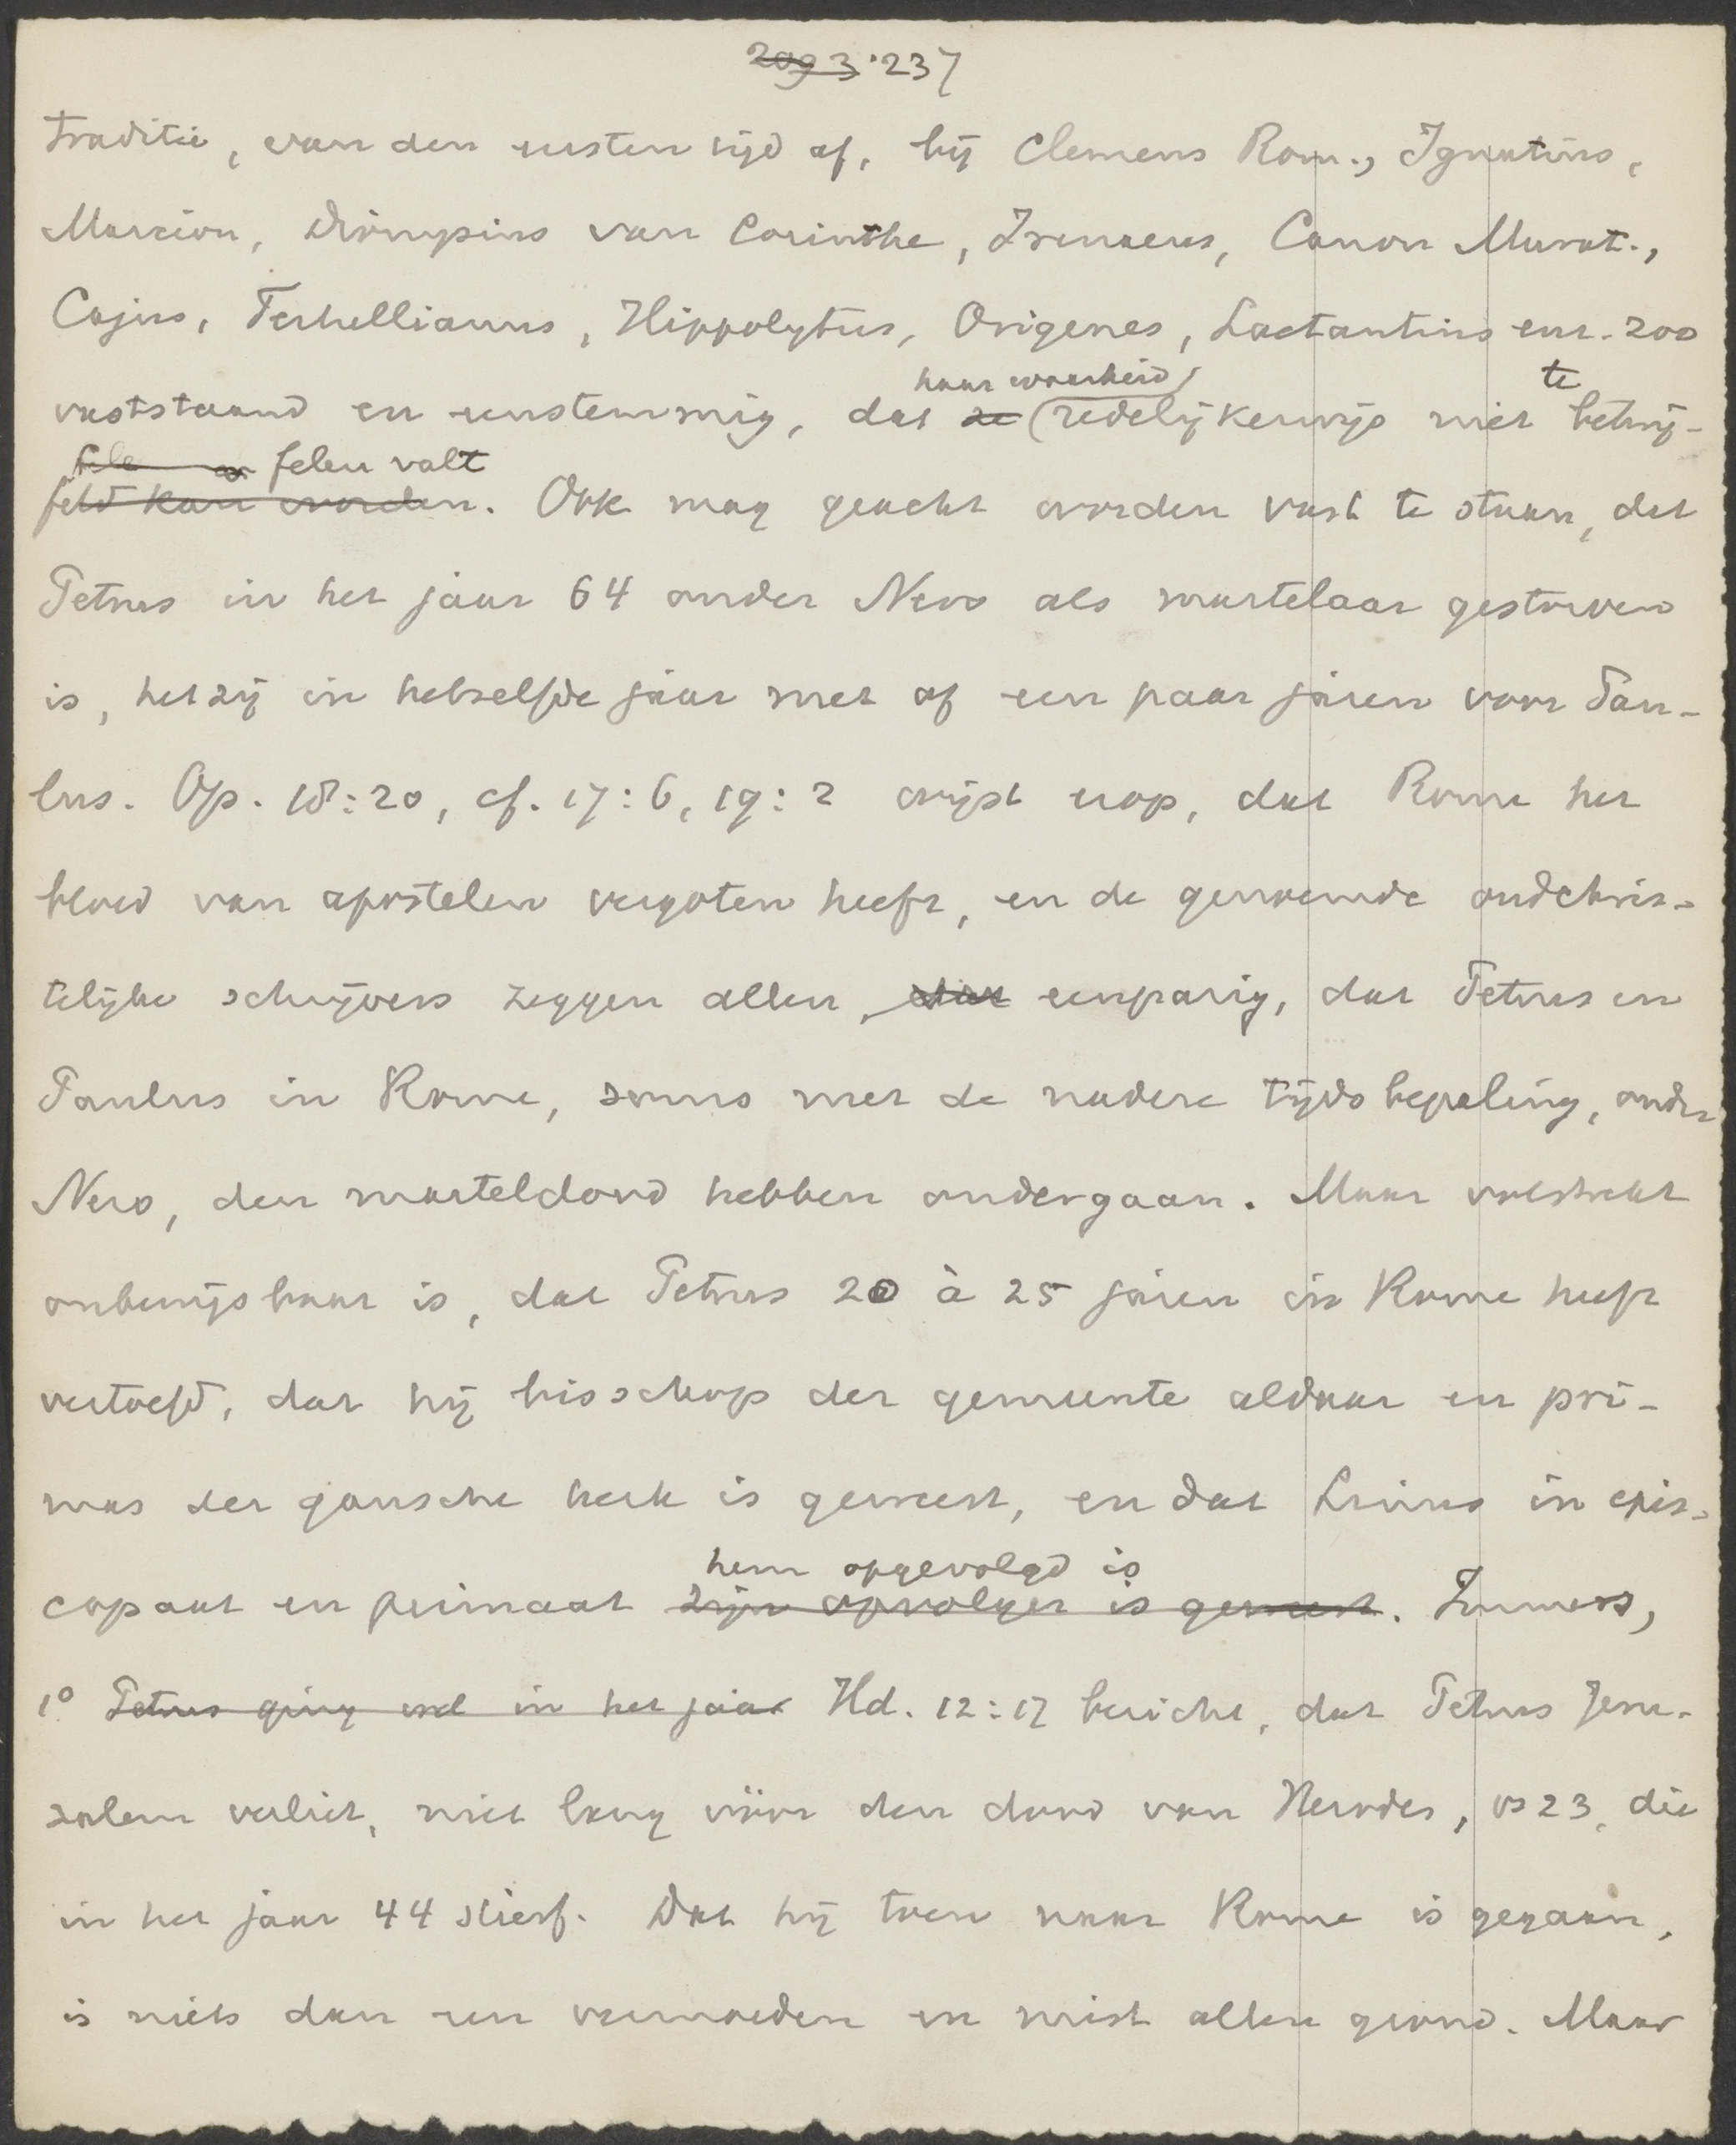 2093. 237
traditie, van den eersten tijd af, bij Clemens Rom., Ignatius,
Marcion, Dionysius van Corinthe, Irenaeus, Canon Murat.,
Cajus, Tertullianus, Hippolytus, Origenes, Lactantius enz. zoo
haar waarheid te
vaststaand en eenstemmig, dat ze redelijkerwijs niet betwij-
felen valt
feld kan worden. Ook mag geacht worden vast te staan, dat
Petrus in het jaar 64 onder Nero als martelaar gestorven
is, hetzij in hetzelfde jaar met of een paar jaren voor Pau-
lus. Op. 18:20, cf. 17:6, 19:2 wijst erop, dat Rome het
bloed van apostelen vergoten heeft, en de genoemde oudchris-
telijke schrijvers zeggen allen, dat eenparig, dat Petrus en
Paulus in Rome, soms met de nadere tijdsbepaling, onder
Nero, den marteldood hebben ondergaan. Maar volstrekt
onbewijsbaar is, dat Petrus 20 à 25 jaren in Rome heeft
vertoefd, dat hij bisschop der gemeente aldaar en pri-
mas der gansche kerk is geweest, en dat Linus in epis-
hem opgevolgd is
copaat en primaat zijn opvolger is geweest. Immers,
1° Petrus ging wel in het jaar Hd. 12:17 bericht, dat Petrus Jeru-
zalem verliet, niet lang vóór den dood van Herodes, vs 23, die
in het jaar 44 stierf. Dat hij toen naar Rome is gegaan,
is niets dan een vermoeden en mist allen grond. Maar